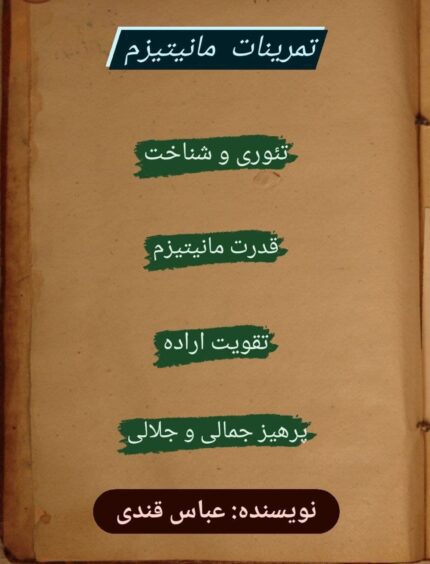 تمرینات مانیتیزم
تئوری و شناخت
قدرت مانیتیزم
تقویت اراده
پرهیز جمالی و جلالی
نویسنده: عباس قندی